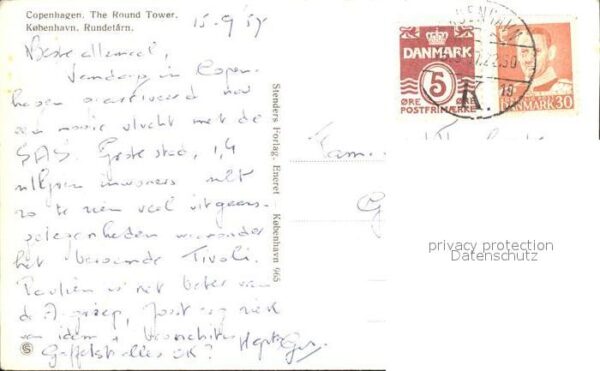 Copenhagen. The Round Tower.
København. Rundetårn.
15-9 '57
Beste allemaal,
Vandaag in Copen-
hagen gearriveerd na
een mooie vlucht met de
SAS. Grote stad, 1,4
miljoen inwoners met
zo te zien veel uitgaans-
gelegenheden waaronder
het beroemde Tivoli.
is net beter van
de A-griep, Joost erg ziek
van idem + bronchitis
alles OK?
Stenders Forlag. Eneret København 965
DANMARK
5
ØRE ØRE
POSTFRIMÆRKE
KØBENHAVN
K.
19
DANMARK 30
Fam.
privacy protection
Datenschutz